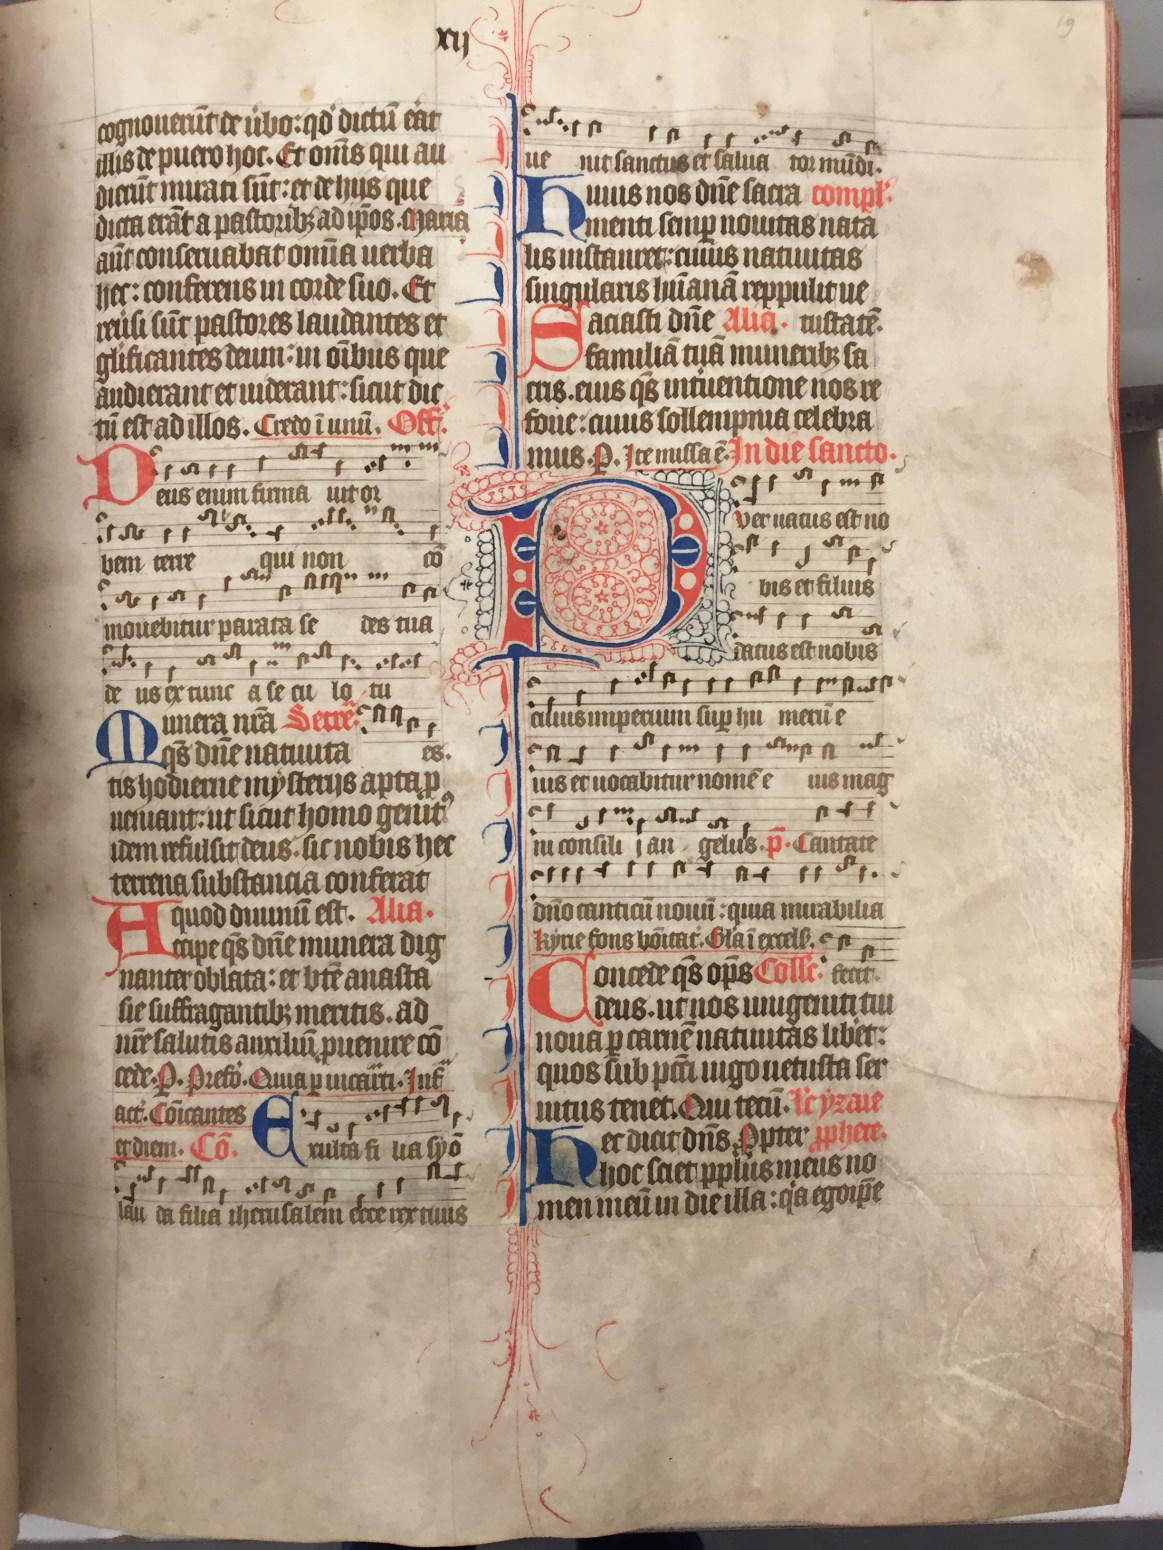 xij
19
cognouerūt de ūbo: qd̄ dictū eāt
illis de puero hoc. Et om̄s qui au
dierūt mirati sūt: et de hijs que
dicta erāt a pastoribꝫ ad ip̄os. Maria
aūt conseruabat om̄ia uerba
hec: conferens in corde suo. Et
reūsi sūt pastores laudantes et
glificantes deum: in oībus que
audierant et uiderant: sicut dic
tū est ad illos. Credo ī unū. Off.
Deus enim firma uit or
bem terre qui non cō
mouebitur parata se des tua
de us ex tunc a se cu lo tu
Munera nr̄a Secre. es.
qs̄ dn̄e natiuita
tis hodierne mysterijs apta ꝓ
ueniant: ut sicut homo genit9
idem refulsit deus. sic nobis hec
terrena substancia conferat
quod diuinū est. Alia.
Accipe qs̄ dn̄e munera dig
nanter oblata: et btē anasta
sie suffragantibꝫ meritis. ad
nr̄e salutis auxiliū ꝓuenire cō
cede. P. Prefō. Quia p incarn̄. Inf̄
act. Cōicantes
et diem. Cō. Exulta fi lia syō
lau da filia iherusalem ecce rex tuus
ue nit sanctus et salua tor mūdi.
Huius nos dn̄e sacra compl.
menti semp nouitas nata
lis instauret: cuius natiuitas
singularis hūanā reppulit ue
Saciasti dn̄e Alia. tustatē.
familiā tuā muneribꝫ sa
cris. eius qs̄ intuentione nos re
foue: cuius sollempnia celebra
mus. P. Ite missa ē. In die sancto.
Puer natus est no
bis et filius
datus est nobis
cuius imperium sup hu merū e
ius et uocabitur nomē e ius mag
ni consili j an gelus. p̄. Cantate
dn̄o canticū nouū: quia mirabilia
kyrie fons bōitat. Gl̄a ī excels.
Concede qs̄ op̄s Collc̄. fecit.
deus. ut nos unigeniti tui
noua p carnē natiuitas libet:
quos sub pctī iugo uetusta ser
uitus tenet. Qui tecū. lc̄ yzaie
Hec dicit dn̄s Ppter ꝓphete.
hoc sciet pplūs meus no
men meū in die illa: qa ego ip̄e